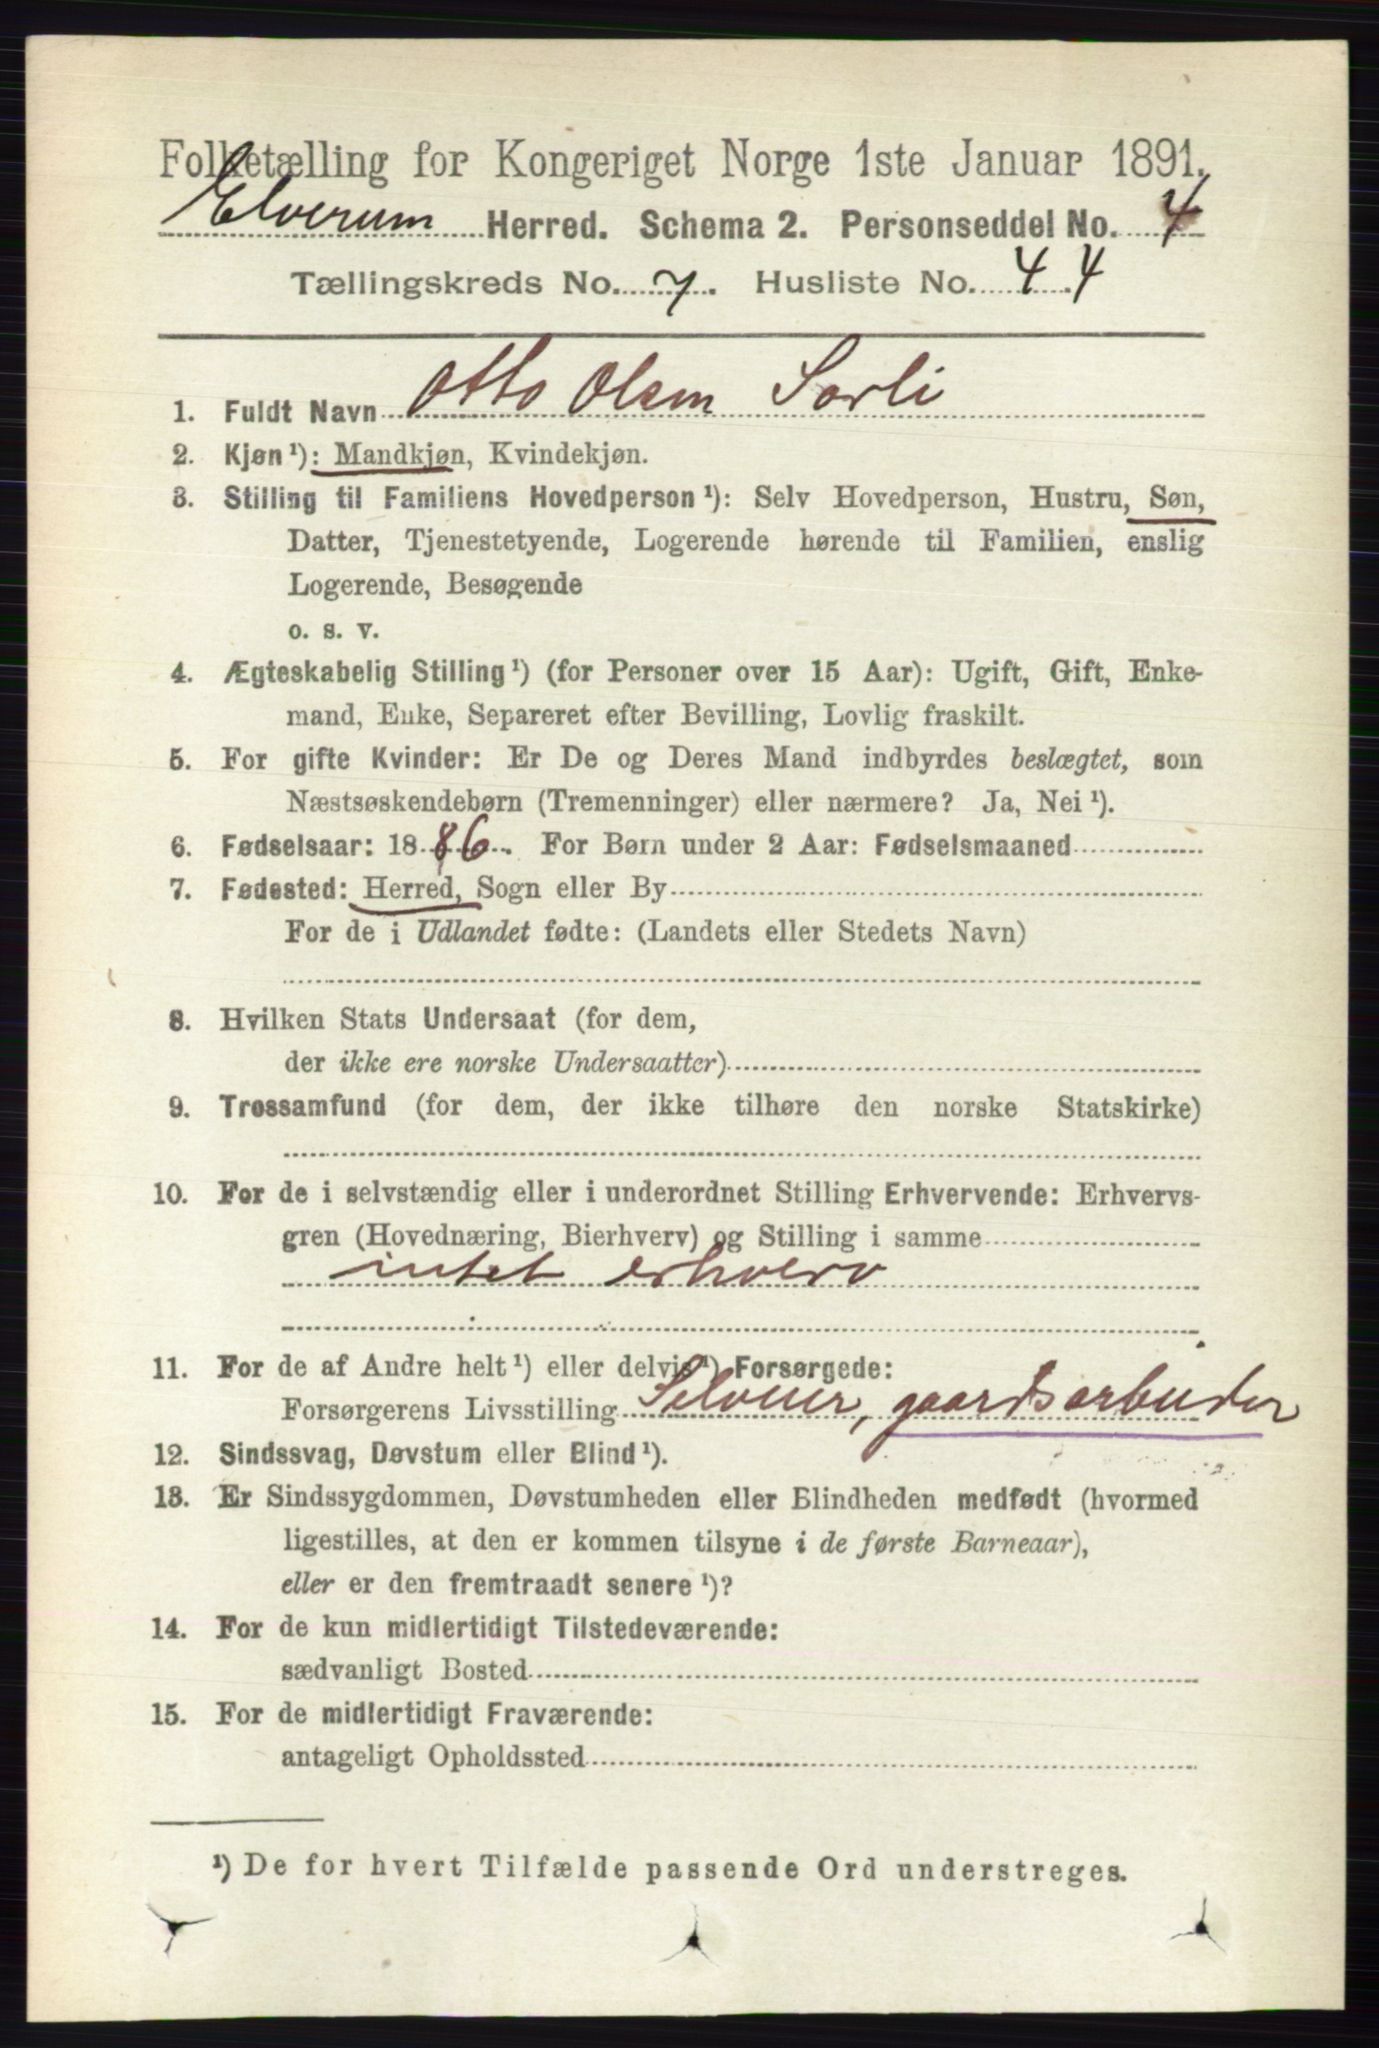 Folketælling for Kongeriget Norge 1ste Januar 1891.
Elverum Herred. Schema 2. Personseddel No. 4
Tællingskreds No. 7. Husliste No. 44
1. Fuldt Navn Otto Olsen Sorli
2. Kjøn ¹): Mandkjøn, Kvindekjøn.
3. Stilling til Familiens Hovedperson ¹): Selv Hovedperson, Hustru, Søn,
Datter, Tjenestetyende, Logerende hørende til Familien, enslig
Logerende, Besøgende
o. s. v.
4. Ægteskabelig Stilling ¹) (for Personer over 15 Aar): Ugift, Gift, Enke-
mand, Enke, Separeret efter Bevilling, Lovlig fraskilt.
5. For gifte Kvinder: Er De og Deres Mand indbyrdes beslægtet, som
Næstsøskendebørn (Tremenninger) eller nærmere? Ja, Nei ¹).
6. Fødselsaar: 1886. For Børn under 2 Aar: Fødselsmaaned
7. Fødested: Herred, Sogn eller By
For de i Udlandet fødte: (Landets eller Stedets Navn)
8. Hvilken Stats Undersaat (for dem,
der ikke ere norske Undersaatter)
9. Trossamfund (for dem, der ikke tilhøre den norske Statskirke)
10. For de i selvstændig eller i underordnet Stilling Erhvervende: Erhvervs-
gren (Hovednæring, Bierhverv) og Stilling i samme
intet erhverv
11. For de af Andre helt ¹) eller delvis ¹) Forsørgede:
Forsørgerens Livsstilling Selveier, gaardsarbeider
12. Sindssvag, Døvstum eller Blind ¹).
13. Er Sindssygdommen, Døvstumheden eller Blindheden medfødt (hvormed
ligestilles, at den er kommen tilsyne i de første Barneaar),
eller er den fremtraadt senere ¹)?
14. For de kun midlertidigt Tilstedeværende:
sædvanligt Bosted
15. For de midlertidigt Fraværende:
antageligt Opholdssted
¹) De for hvert Tilfælde passende Ord understreges.